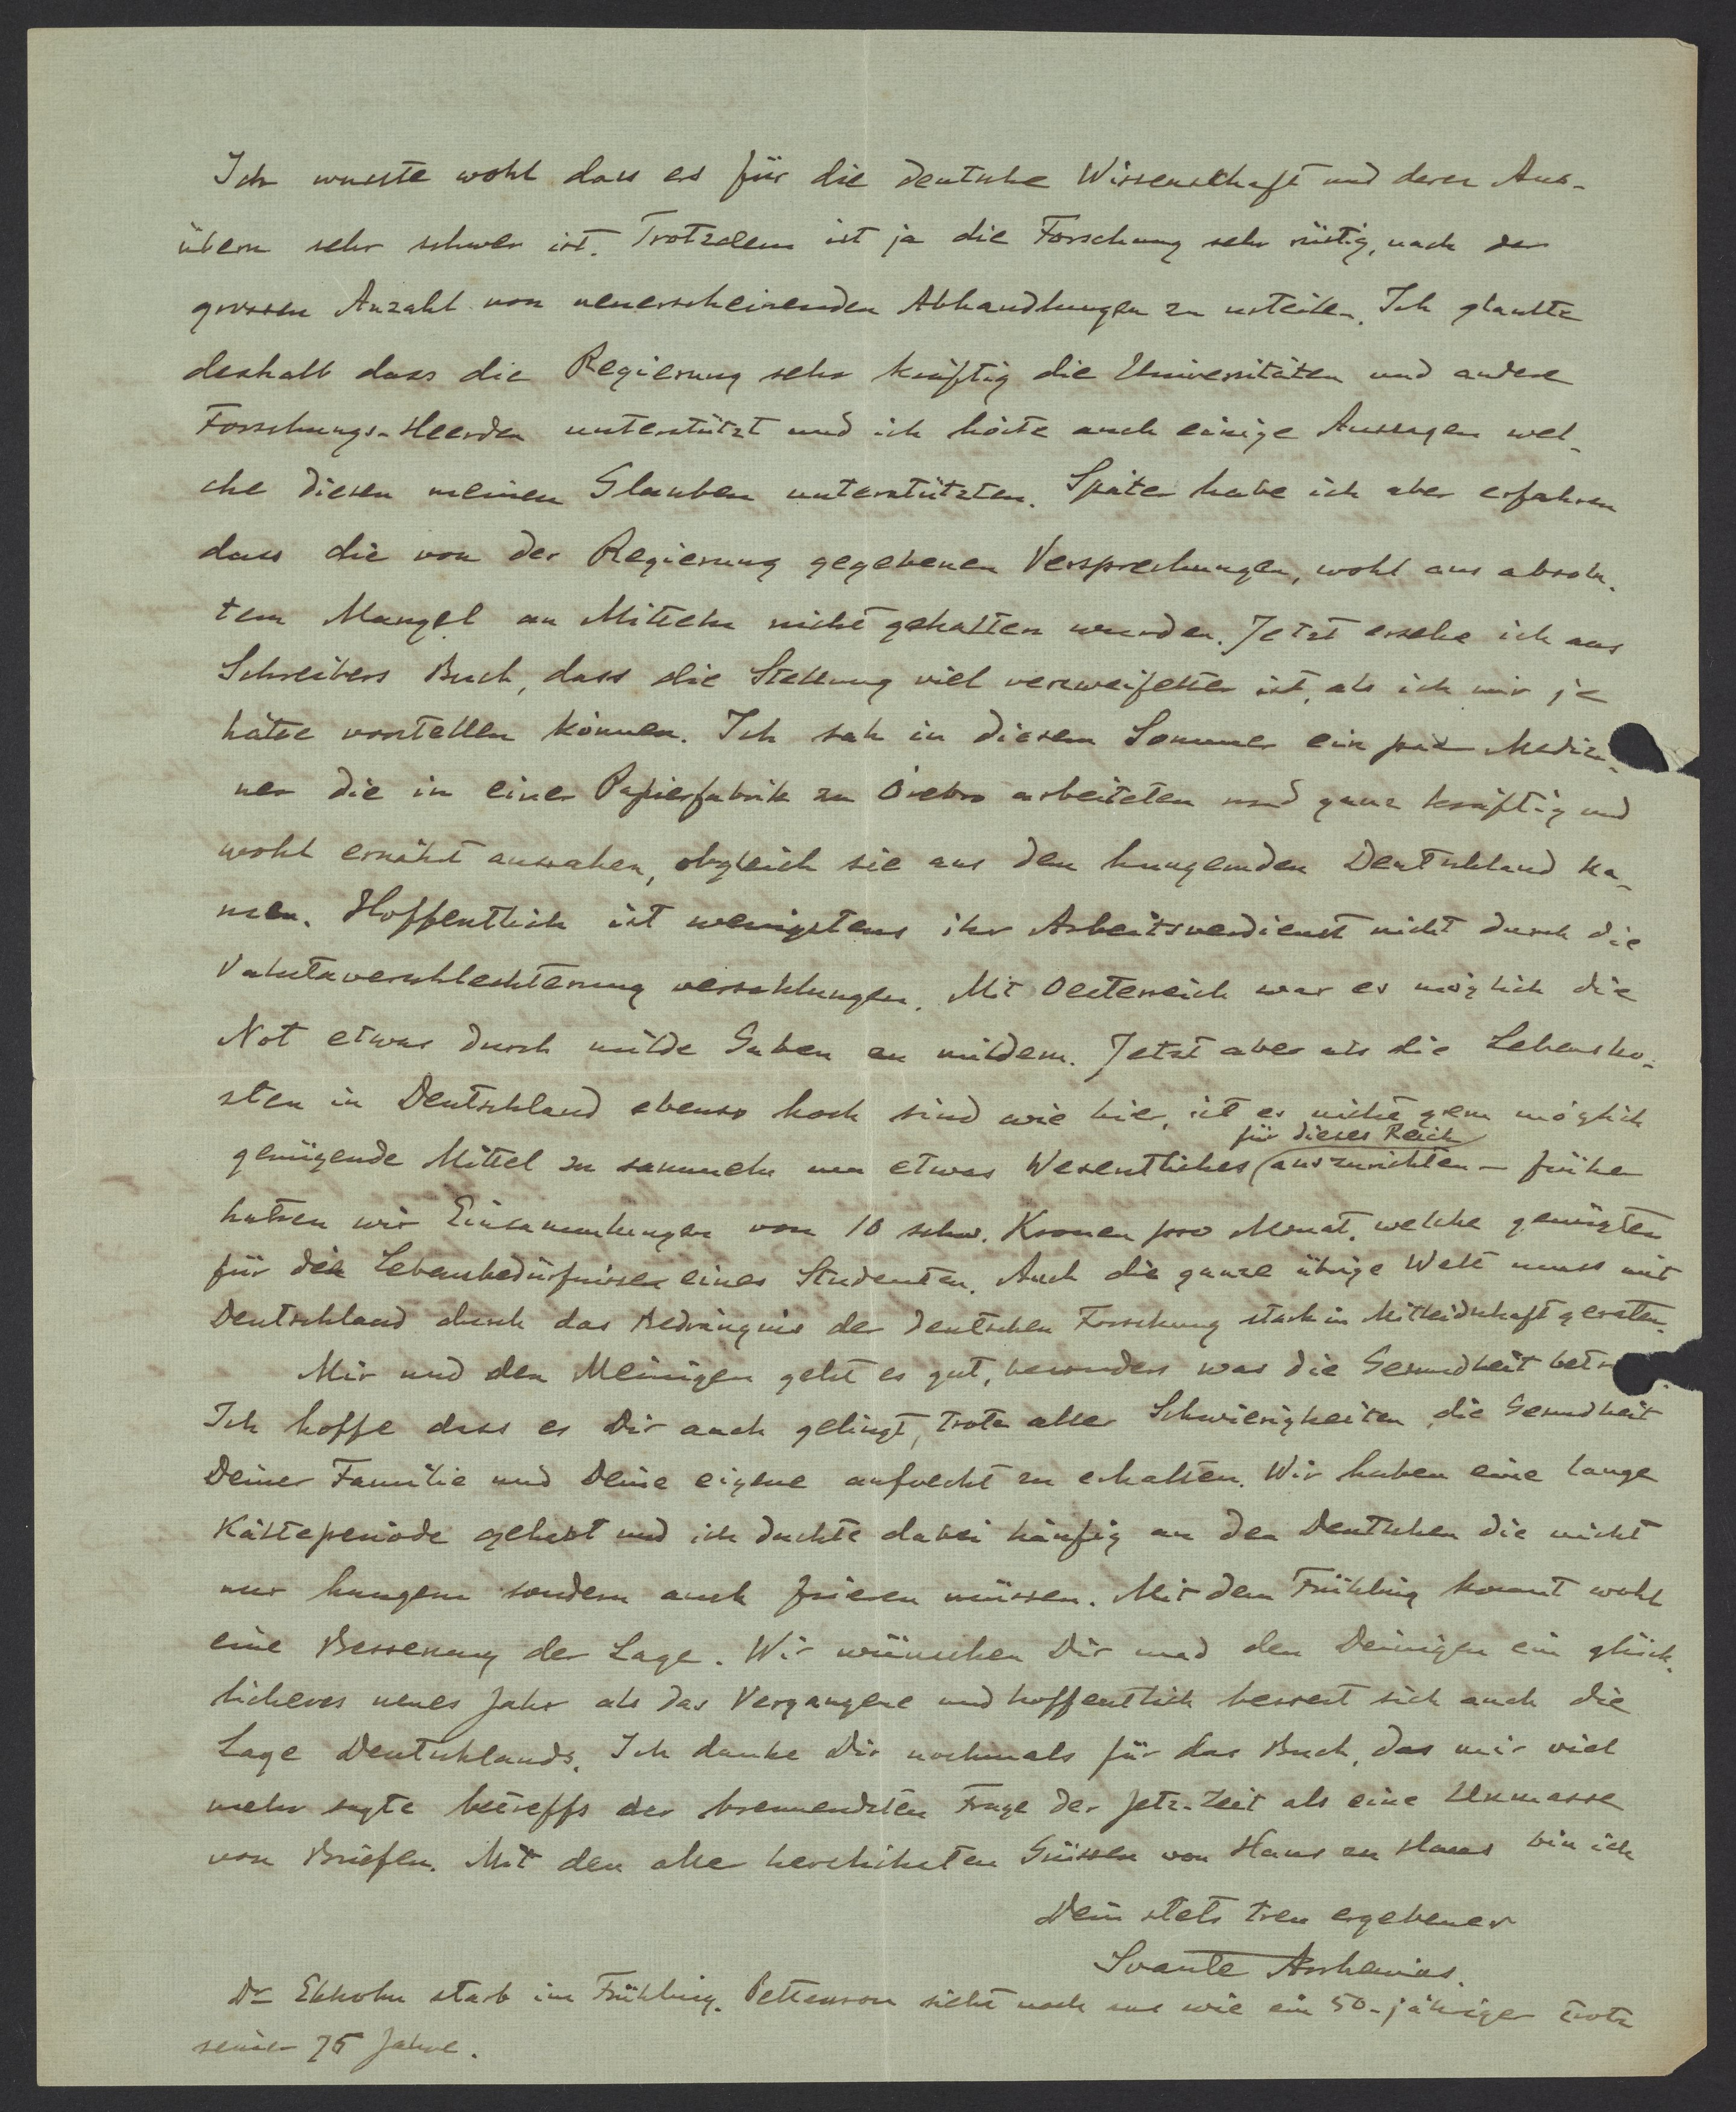 Ich wusste wohl dass es für die deutsche Wissenschaft und deren Aus-
übern sehr schwer ist. Trotzdem ist ja die Forschung sehr rüstig, nach der
grossen Anzahl von neuerscheinenden Abhandlungen zu urteilen. Ich glaubte
deshalb dass die Regierung sehr kräftig die Universitäten und andere
Forschungs-Heerden unterstützt und ich hörte auch einige Aussagen wel-
che diesen meinen Glauben unterstützten. Später habe ich aber erfahren
dass die von der Regierung gegebenen Versprechungen, wohl aus absolu-
tem Mangel an Mitteln nicht gehalten wurden. Jetzt ersehe ich aus
Schreibers Buch, dass die Stellung viel verzweifelter ist, als ich mir je
hätte vorstellen können. Ich sah in diesem Sommer ein paar Medizi-
ner die in einer Papierfabrik zu Örebro arbeiteten und ganz kräftig und
wohl ernährt aussahen, obgleich sie aus den hungernden Deutschland ka-
men. Hoffentlich ist wenigstens ihr Arbeitsverdienst nicht durch die
Valutaverschlechterung verschlungen. Mit Oesterreich war es möglich die
Not etwas durch milde Gaben zu mildern. Jetzt aber als die Lebensko-
sten in Deutschland ebenso hoch sind wie hier, ist es nicht gern möglich
für dieses Reich
genügende Mittel zu sammeln um etwas Wesentliches auszurichten – früher
hatten wir Einsammlungen von 10 schw. Kronen pro Monat, welche genügten
für die Lebensbedürfnisse eines Studenten. Auch die ganze übrige Welt muss mit
Deutschland durch das Bedrängnis der deutschen Forschung stark in Mitleidschaft geraten.
Mir und den Meinigen geht es gut, besonders was die Gesundheit betr
Ich hoffe dass es Dir auch gelingt, trotz aller Schwierigkeiten, die Gesundheit
Deiner Familie und Deine eigene aufrecht zu erhalten. Wir haben eine lange
Kälteperiode gehabt und ich dachte dabei häufig an den Deutschen die nicht
nur hungern sondern auch frieren müssen. Mit dem Frühling kommt wohl
eine Besserung der Lage. Wir wünschen Dir und den Deinigen ein glück-
licheres neues Jahr als das Vergangene und hoffentlich bessert sich auch die
Lage Deutschlands. Ich danke Dir nochmals für das Buch, das mir viel
mehr sagte betreffs der brennendsten Frage der Jetz-Zeit als eine Unmasse
von Briefen. Mit den aller herzlichsten Grüssen von Haus zu Haus bin ich
Dein stets treu ergebener
Svante Arrhenius.
Dr Ekholm starb im Frühling. Pettersson sieht noch aus wie ein 50-jähriger trotz
seiner 75 Jahre.